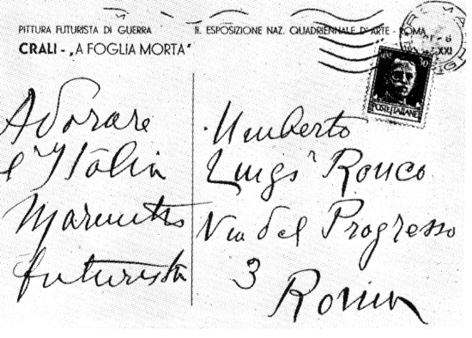 PITTURA FUTURISTA DI GUERRA
II. ESPOSIZIONE NAZ. QUADRIENNALE D'ARTE - ROMA
CRALI - „A FOGLIA MORTA"
Adorare
l'Italia
futurista
Umberto
Luigi Ronco
Via del Progresso
3
Roma
XXI
POSTE ITALIANE